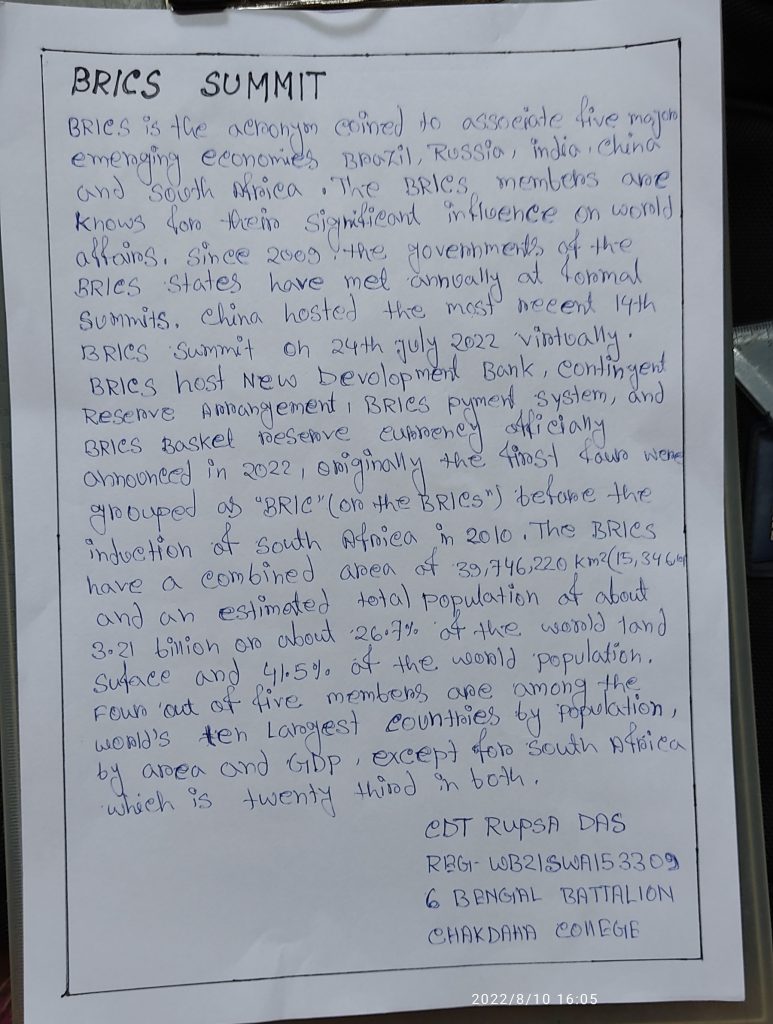 BRICS SUMMIT
BRICS is the acronym coined to associate five major
emerging economies Brazil, Russia, india, china
and south Africa. The BRICS members are
knows for their significant influence on world
affairs. since 2009, the governments of the
BRICS states have met annually at formal
summits. china hosted the most recent 14th
BRICS summit on 24th july 2022 virtually.
BRICS host New Devolopment Bank, contingent
Reserve Arrangement, BRICS pyment system, and
BRICS Basket reserve currency officially
announced in 2022, originally the first four were
grouped as "BRIC" (or the BRICs") before the
induction of south Africa in 2010. The BRICS
have a combined area of 39,746,220 km2(15,346
and an estimated total population of about
3.21 billion or about 26.7% of the world land
suface and 41.5% of the world population.
Four out of five members are among the
world's ten Largest countries by population,
by area and GDP, except for south Africa
which is twenty third in both.
CDT RUPSA DAS
REG- WB21SWA153309
6 BENGAL BATTALION
CHAKDAHA COllEGE
2022/8/10 16:05